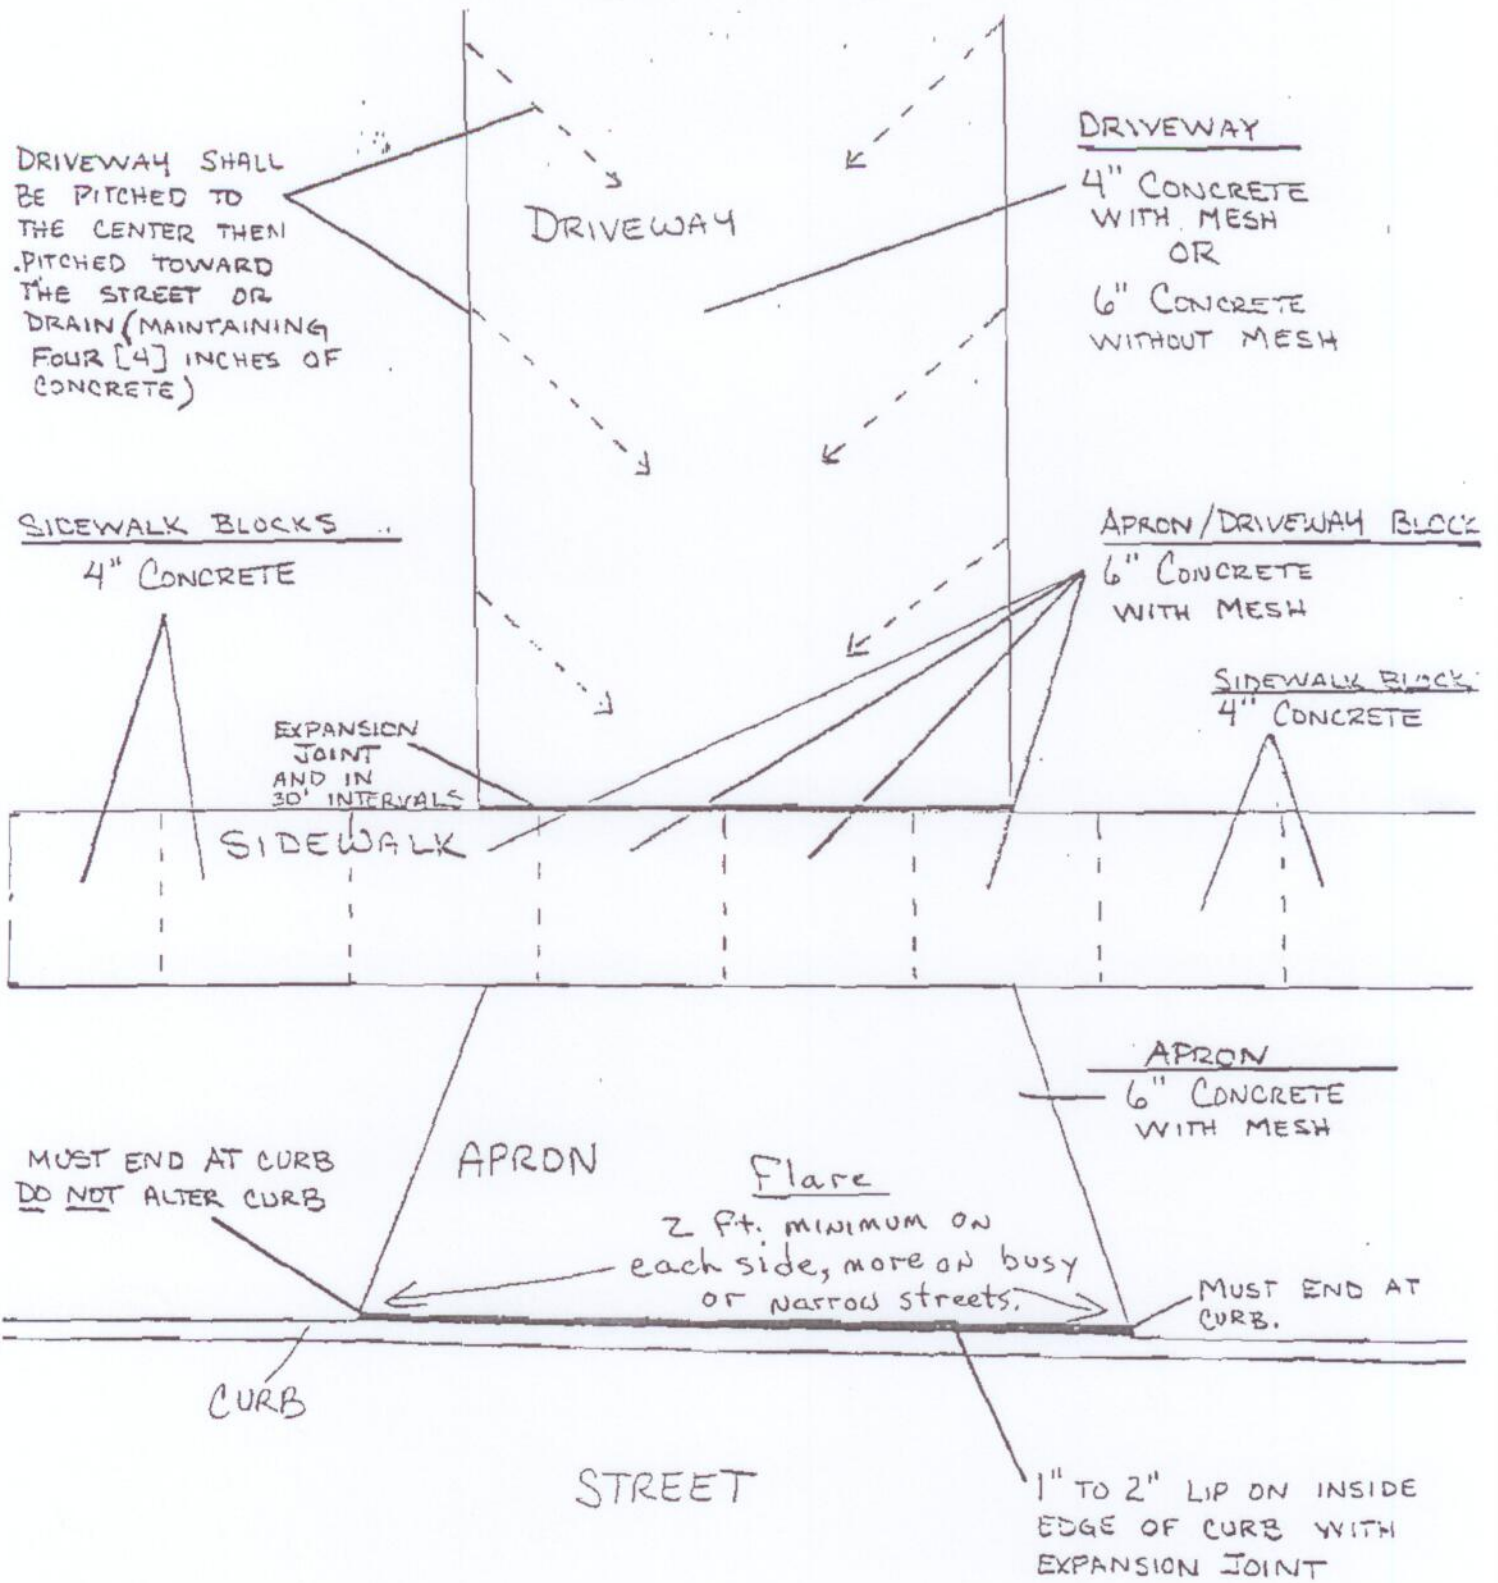 DRIVEWAY SHALL
BE PITCHED TO
THE CENTER THEN
PITCHED TOWARD
THE STREET OR
DRAIN (MAINTAINING
FOUR [4] INCHES OF
CONCRETE)
DRIVEWAY
DRIVEWAY
4" CONCRETE
WITH MESH
OR
6" CONCRETE
WITHOUT MESH
SIDEWALK BLOCKS
4" CONCRETE
APRON/DRIVEWAY BLOCK
6" CONCRETE
WITH MESH
SIDEWALK BLOCK
4" CONCRETE
EXPANSION
JOINT
AND IN
30' INTERVALS
SIDEWALK
APRON
6" CONCRETE
WITH MESH
MUST END AT CURB
DO NOT ALTER CURB
APRON
Flare
2 Ft. MINIMUM ON
each side, more on busy
or narrow streets.
MUST END AT
CURB.
CURB
STREET
1" TO 2" LIP ON INSIDE
EDGE OF CURB WITH
EXPANSION JOINT